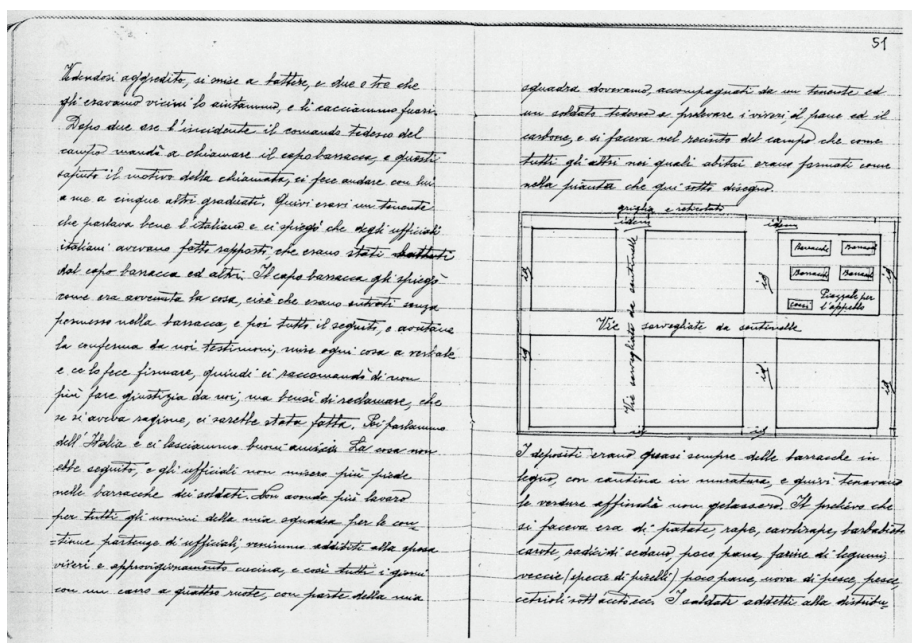 Vedendosi aggredito, si mise a battere, e due o tre che
gli eravamo vicini lo aiutammo, e li cacciammo fuori.
Dopo due ore l'incidente il comando tedesco del
campo mandò a chiamare il capo baracca, e questi
saputo il motivo della chiamata, ci fece andare con lui
a me a cinque altri graduati. Quivi eravi un tenente
che parlava bene l'italiano e ci spiegò che degli ufficiali
italiani avevano fatto rapporti, che erano stati battuti
dal capo barracca ed altri. Il capo baracca gli spiegò
come era avvenuta la cosa, cioè che erano entrati senza
permesso nella barracca, e poi tutto il seguito, e avutane
la conferma da noi testimoni, mise ogni cosa a verbale
e ce lo fece firmare, quindi ci raccomandò di non
più fare giustizia da noi, ma bensì di reclamare, che
se si aveva ragione, ci sarebbe stata fatta. Poi parlammo
dell'Italia e ci lasciammo buoni amici. La cosa non
ebbe seguito, e gli ufficiali non misero più piede
nelle barracche dei soldati. Non avendo più lavoro
per tutti gli uomini della mia squadra per le con=
=tinue partenze di ufficiali, venimmo additti alla spesa
viveri e approvigionamento cucina, e così tutti i giorni
con un carro a quattro ruote, con parte della mia
51
squadra dovevamo, accompagnati da un tenente ed
un soldato tedesco a prelevare i viveri il pane ed il
carbone, e si faceva nel recinto del campo che come
tutti gli altri nei quali abitai erano formati come
nella pianta che qui sotto disegno.
griglia e reticolato
idem
idem
Baracche
Baracche
Baracche
Baracche
Piazzale per
l'appello
id
id
id
Vie sorvegliate da sentinelle
Vie sorvegliate da sentinelle
id
id
id
id
id
I depositi erano quasi sempre delle barracche in
legno, con cantina in muratura, e quivi tenevano
le verdure affinchè non gelassero. Il prelievo che
si faceva era di patate, rape, cavolirape, barbabietole
carote, radici di sedano, poco pane, farine di legumi,
veccie (specie di piselli) poco pane, uova di pesce, pesce,
cetrioli sott'aceto ecc. I soldati addetti alla distribu=